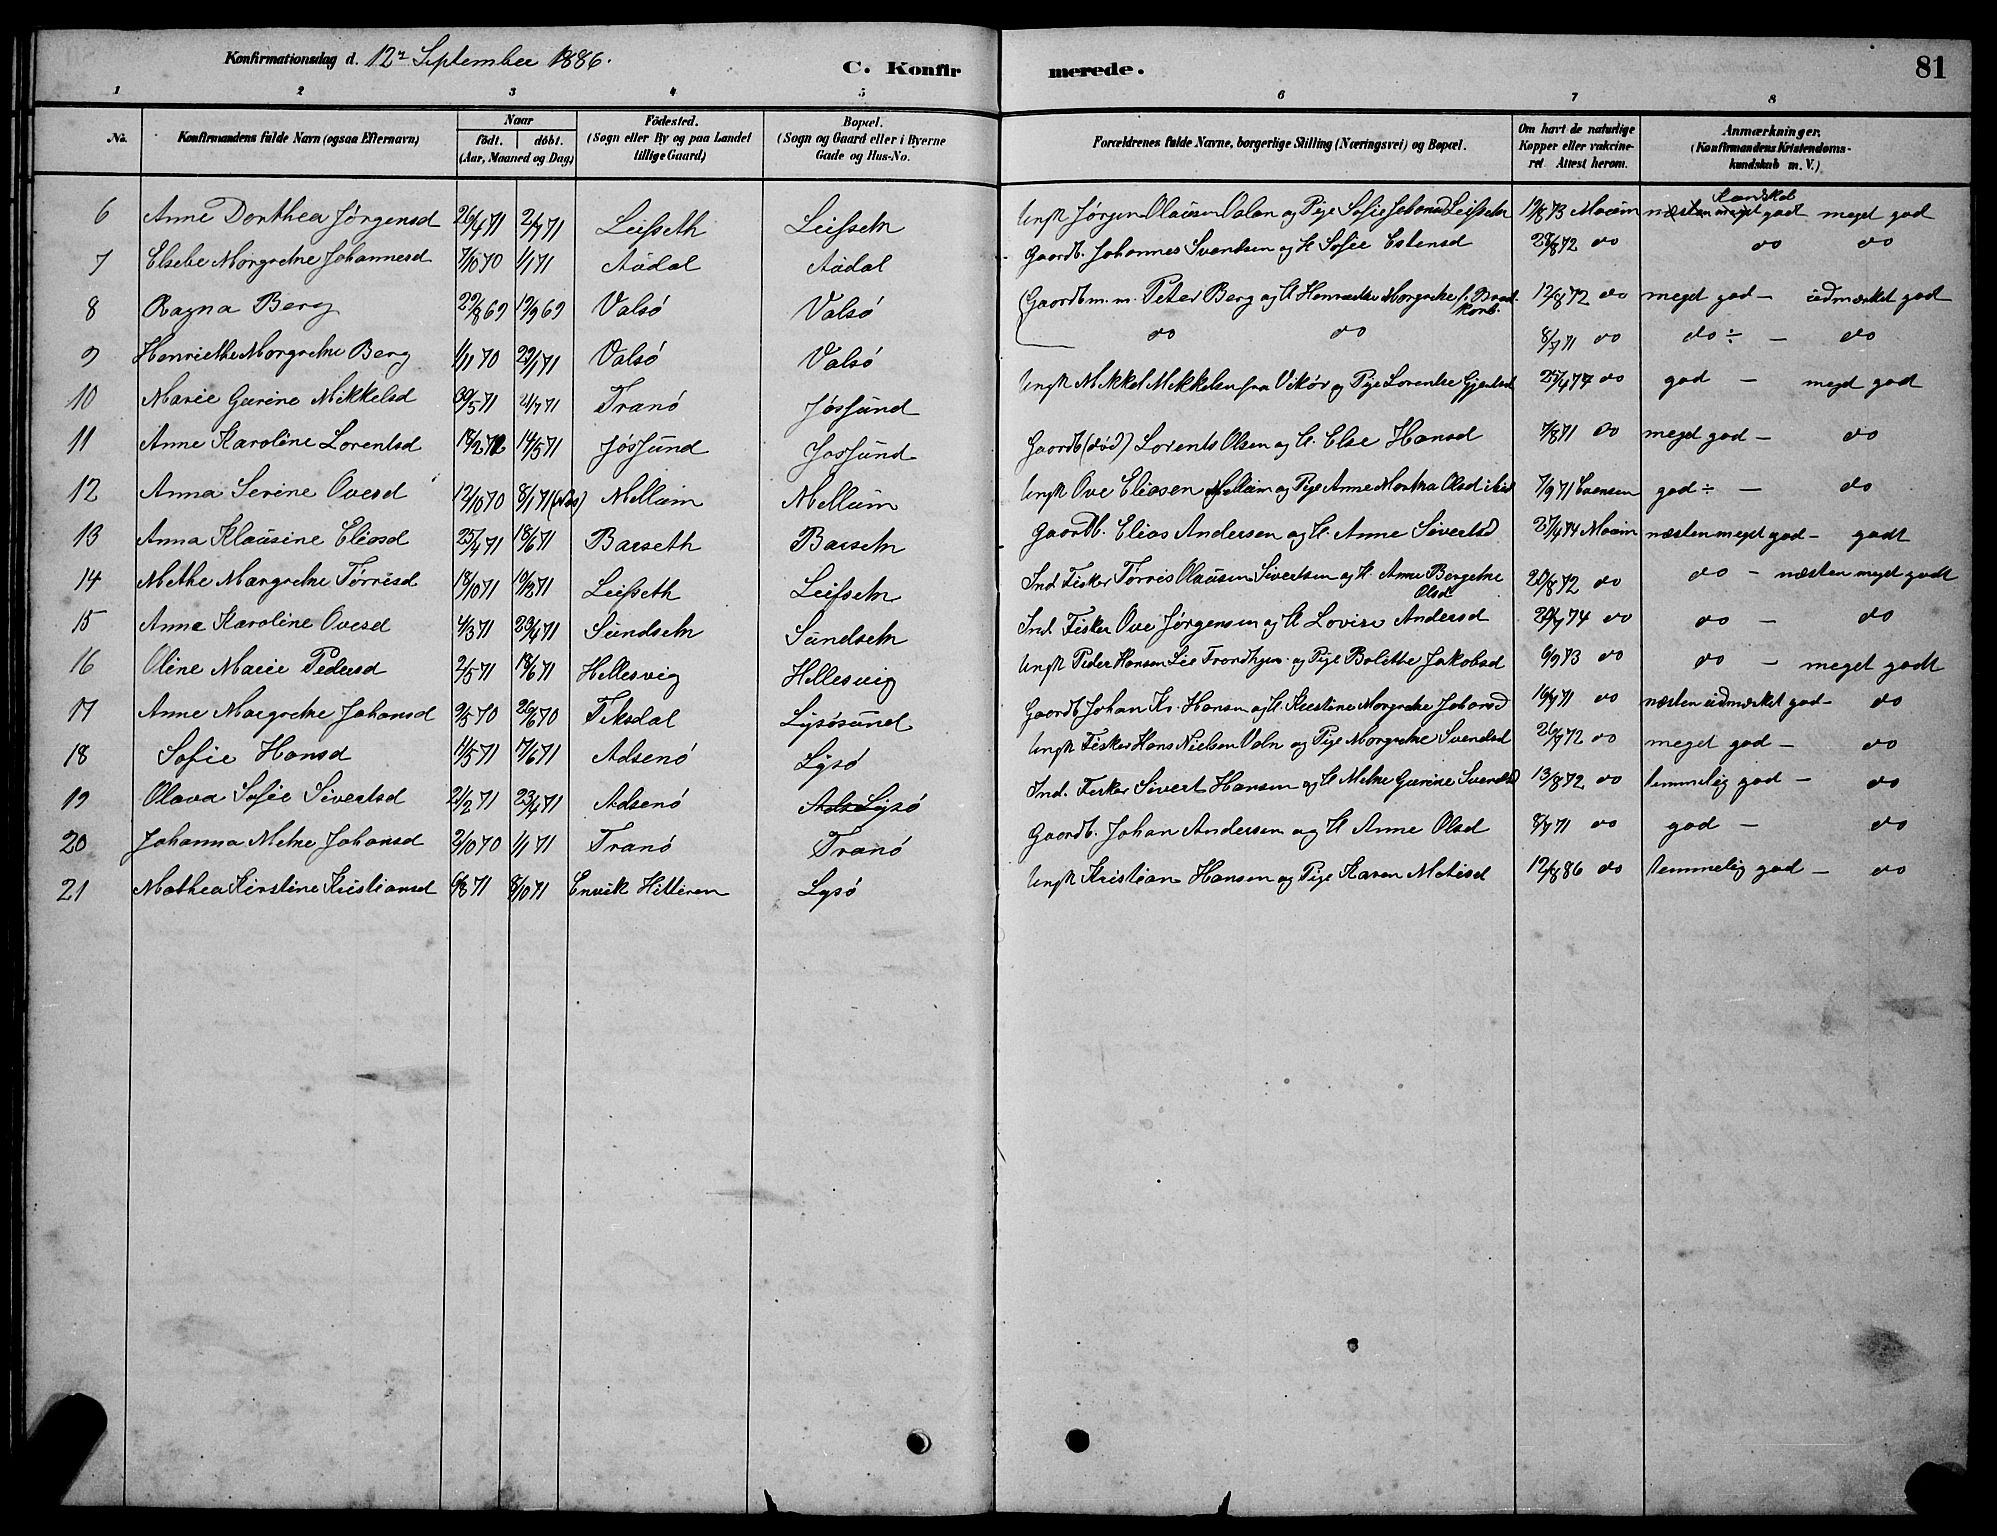 Konfirmationsdag d. 12te September 1886.
C. Konfirmerede.
81
1 2 3 4 5 6 7 8
No.
Konfirmandens fulde Navn (ogsaa Efternavn)
Naar
födt. döbt.
(Aar, Maaned og Dag)
Födested.
(Sogn eller By og paa Landet
tillige Gaard)
Bopæl.
(Sogn og Gaard eller i Byerne
Gade og Hus-No.
Forældrenes fulde Navne, borgerlige Stilling (Næringsvei) og Bopæl.
Om havt de naturlige
Kopper eller vakcine-
ret Attest herom.
Anmærkninger.
(Konfirmandens Kristendoms-
kundskab m. V.)
6 Anne Dorthea Jørgensd 26/4 71 2/7 71 Leifseth Leifseth Ungk Jørgen Olausen Valan og Pige Sofie Johansd Leifseth 12/8 73 Moum Kundskab næsten meget godt meget god
7 Elsebe Margrethe Johannesd 7/10 70 1/1 71 Audal Audal Gaardb. Johannes Svendsen og H. Sofie Estensd 28/8 72 do do do
8 Ragna Berg 22/8 69 12/9 69 Valsö Valsö Gaardbm. m. Peter Berg og H. Henriette Margrethe f. Brodkorb. 12/8 72 do meget god — udmærket god
9 Henriethe Margrethe Berg 1/11 70 22/1 71 Valsö Valsö do do 8/7 71 do do ÷ — do
10 Marie Gurine Mikkelsd 30/5 71 2/7 71 Tranö Jøssund Ungk Mikkel Mikkelsen fra Vikör og Pige Lorentze Gjertsd 25/4 77 do god — meget god
11 Anne Karoline Lorentsd 18/2 71 14/5 71 Jøssund Jøssund Gaardb (död) Lorents Olsen og H. Else Hansd 7/8 71 do meget god — do
12 Anna Serine Ovesd 12/10 70 8/1 71 Mellum Mellum Ungk Ove Eliasen Mellum og Pige Anne Martha Olsd 7/9 71 Evensen god ÷ — do
13 Anna Klausine Eliasd 25/4 71 18/6 71 Barseth Barseth Gaardb. Elias Andersen og H. Anne Sivertsd 27/4 74 Moum næsten meget god — godt
14 Methe Margrethe Tørrisd 18/10 71 Leifseth Leifseth Ind. Fisker Tørris Olausen Sivertsen og H. Anne Bergethe Olsd 20/8 72 do do — næsten meget godt
15 Anna Karoline Ovesd 4/3 71 23/4 71 Sundseth Sundseth Ind. Fisker Ove Jørgensen og H Lovise Andersd do do — do
16 Oline Marie Pedersd 2/5 71 18/6 71 Hellesvig Hellesvig Ungk Peder Hansen Lie Trondhjem og Pige Bolette Jakobsd 6/9 73 do do — meget godt
17 Anne Margrethe Johansd 2/5 70 26/6 70 Teksdal Lysøsund Gaardb Johan Kr. Hansen og H Kirstine Margrethe Johansd do næsten udmærket god — do
18 Sofie Hansd 1/5 71 7/6 71 Adsenö Lysö Ungk Fisker Hans Nielsen Valn og Pige Margrethe Svendsd 26/9 72 do meget god — do
19 Olava Sofie Sivertsd 21/2 71 23/4 71 Adsenö Lysö Ind. Fisker Sivert Hansen og H Methe Gurine Svendsd 13/8 72 do temmelig god — do
20 Johanna Methe Johansd 3/10 70 1/1 71 Tranö Tranö Gaardb. Johan Andersen og H Anne Olsd 8/7 71 do god — do
21 Mathea Kirstine Kristiansd 6/8 71 8/10 71 Envik Hitteren Lysö Ungk Kristian Hansen og Pige Karen Matisd 12/8 86 do temmelig god — do